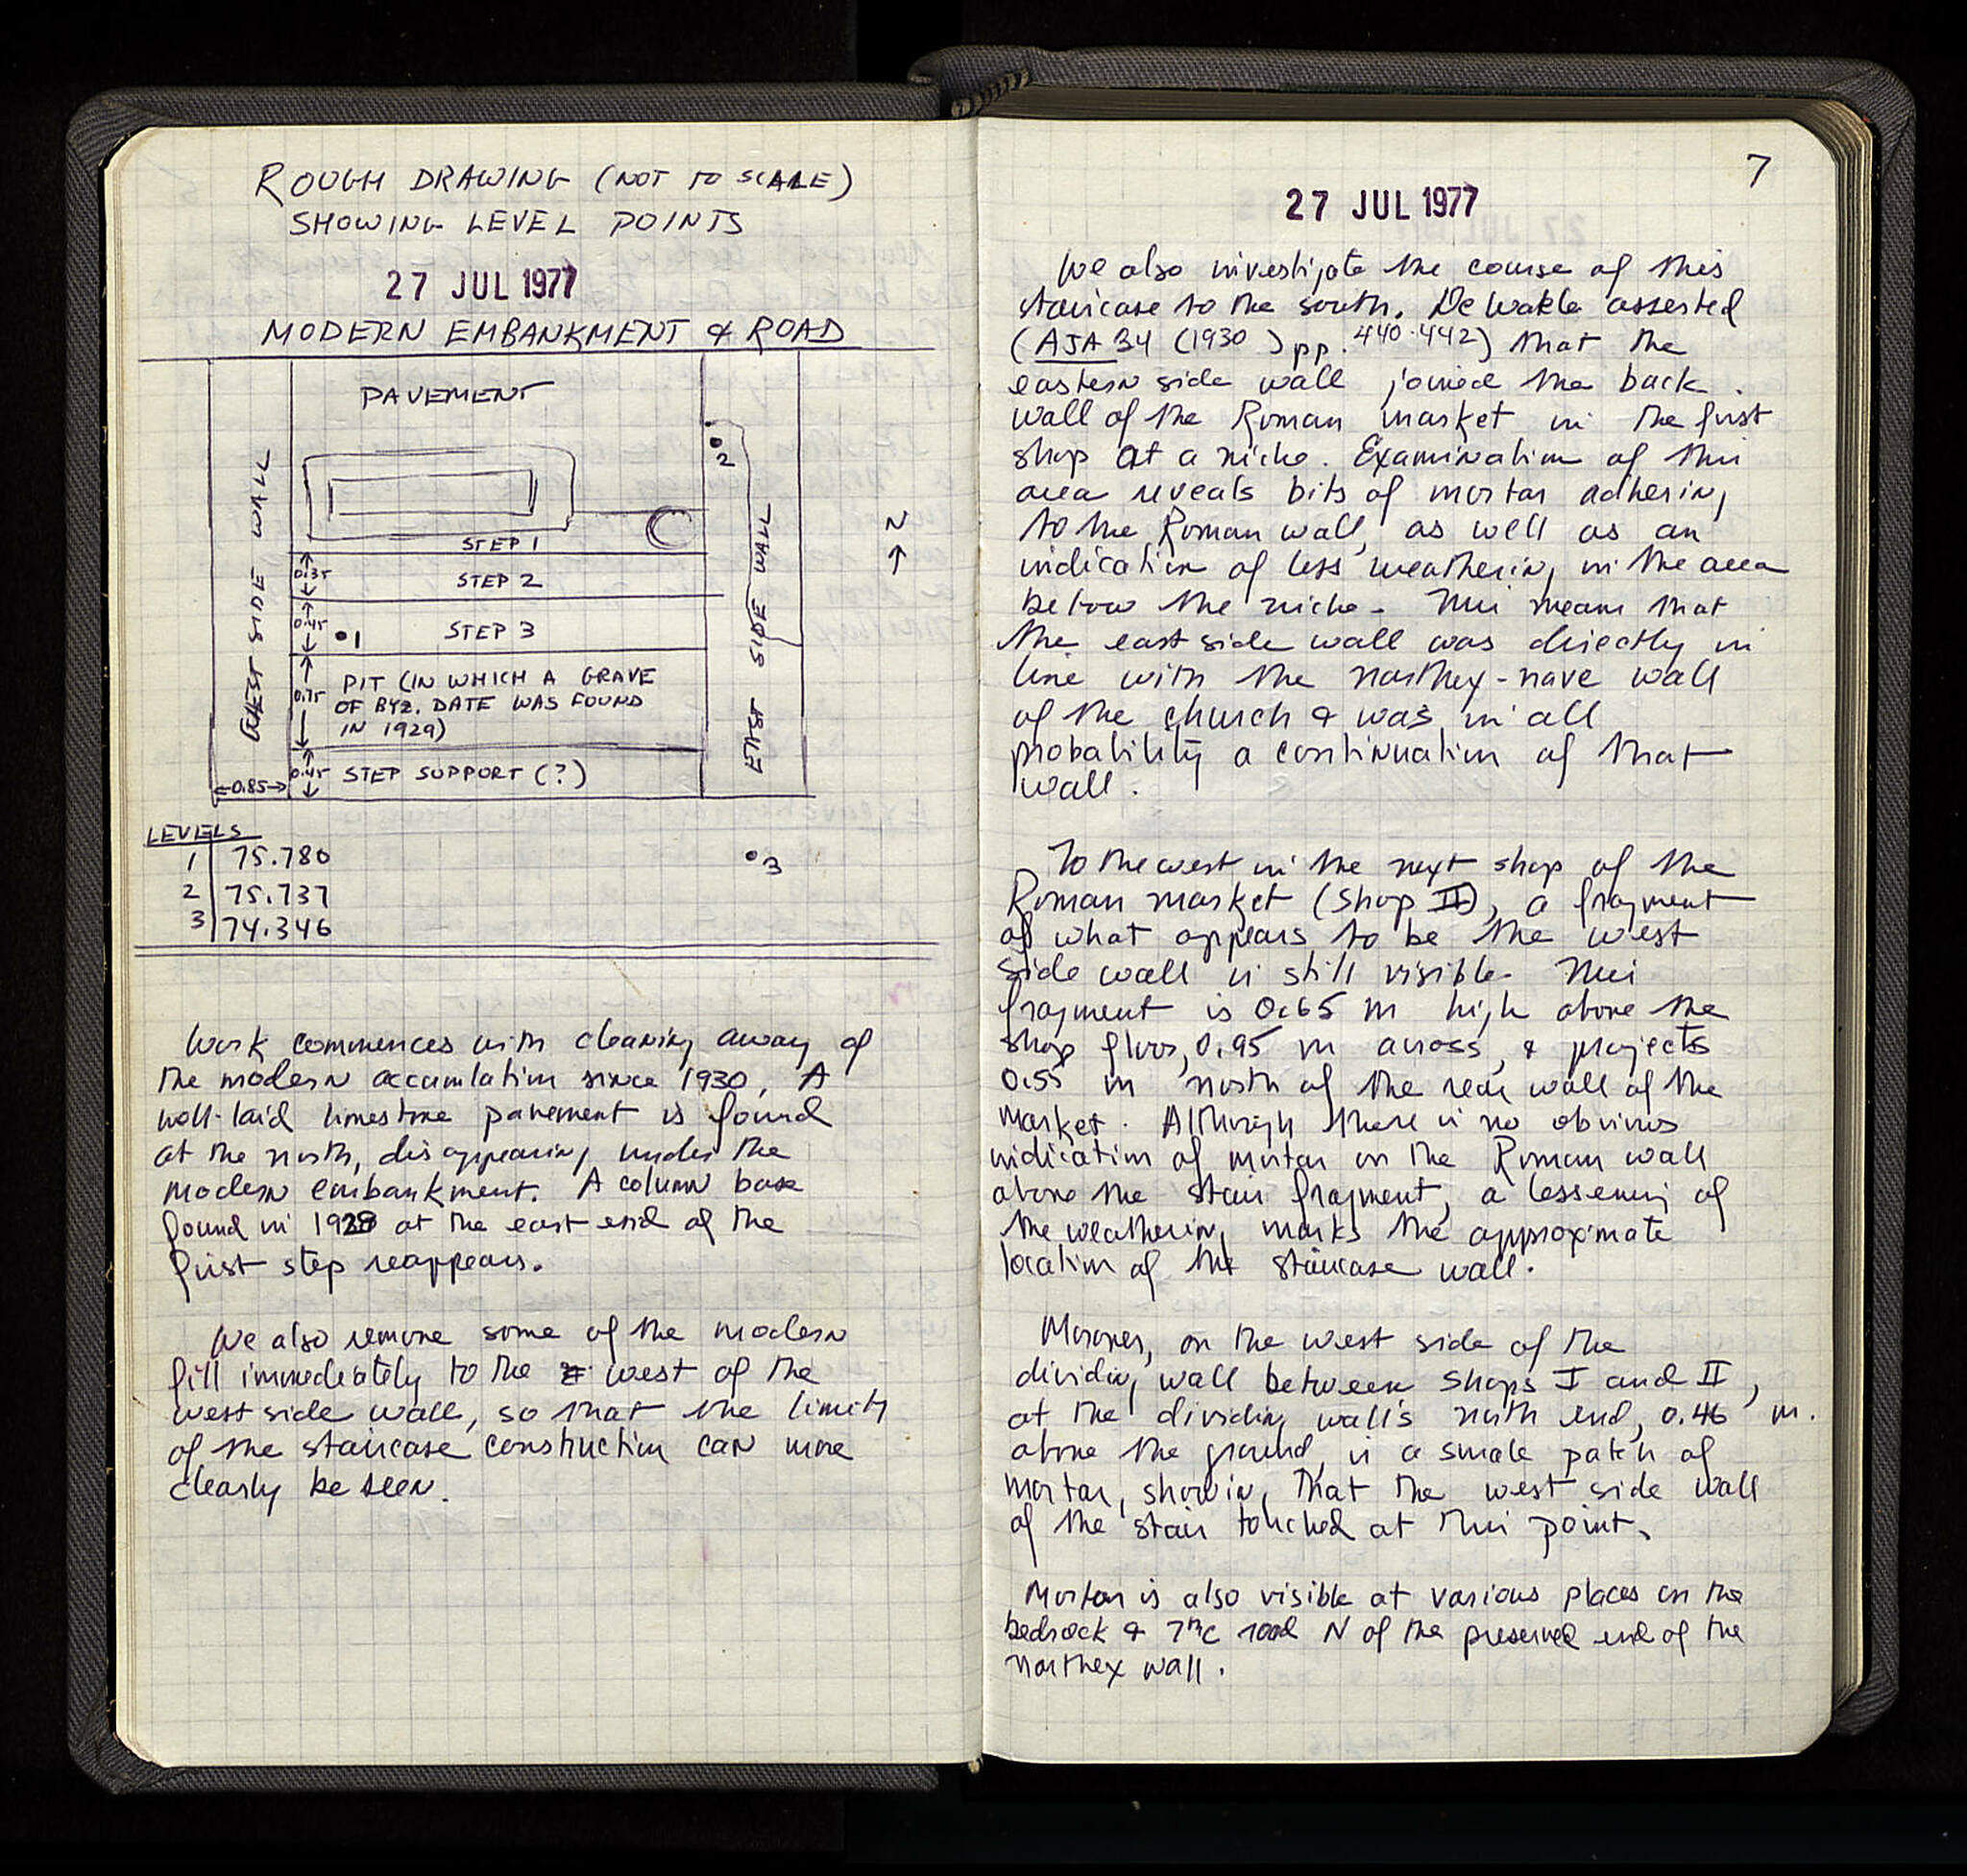 ROUGH DRAWING (NOT TO SCALE)
SHOWING LEVEL POINTS
27 JUL 1977
MODERN EMBANKMENT & ROAD
PAVEMENT
WEST SIDE WALL
EAST SIDE WALL
•2
N
STEP 1
0.35
STEP 2
0.45
•1
STEP 3
0.75
PIT (IN WHICH A GRAVE
OF BYZ. DATE WAS FOUND
IN 1929)
0.45
STEP SUPPORT (?)
0.85
LEVELS
1 75.780
2 75.737
3 74.346
•3
Work commences with cleaning away of
the modern accumlation since 1930. A
well-laid limestone pavement is found
at the north, disappearing under the
modern embankment. A column base
found in 1929 at the east end of the
first step reappears.
We also remove some of the modern
fill immediately to the west of the
west side wall, so that the limits
of the staircase construction can more
clearly be seen.
7
27 JUL 1977
We also investigate the course of this
staircase to the south. De Waele asserted
(AJA 34 (1930) pp. 440-442) that the
eastern side wall joined the back
wall of the Roman market in the first
shop at a niche. Examination of this
area reveals bits of mortar adhering
to the Roman wall, as well as an
indication of less weathering in the area
below the niche. This means that
the east side wall was directly in
line with the narthex-nave wall
of the church & was in all
probability a continuation of that
wall.
To the west in the next shop of the
Roman market (Shop II), a fragment
of what appears to be the west
side wall is still visible. This
fragment is 0.65 m high above the
shop floor, 0.95 m across, & projects
0.55 m north of the rear wall of the
market. Although there is no obvious
indication of mortar on the Roman wall
above the stair fragment, a lessening of
the weathering marks the approximate
location of the staircase wall.
Moreover, on the west side of the
dividing wall between Shops I and II,
at the dividing wall's north end, 0.46 m.
above the ground, is a small patch of
mortar, showing that the west side wall
of the stair touched at this point.
Mortar is also visible at various places on the
bedrock & 7th c road N of the preserved end of the
narthex wall.